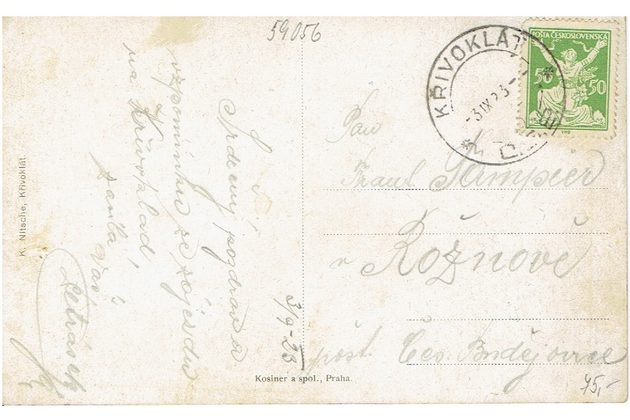 59056
Srdečný pozdrav a
vzpomínku ze zájezdu
na Křivoklad
zasílá Váš
3/9-23
K. Nitsche, Křivoklát.
Kosiner a spol., Praha.
KŘIVOKLÁT
-3.IX.23-
POŠTA ČESKOSLOVENSKÁ
50 50
Pan
Frant.
v Rožnově
pošt. Čes. Budějovice
45,-